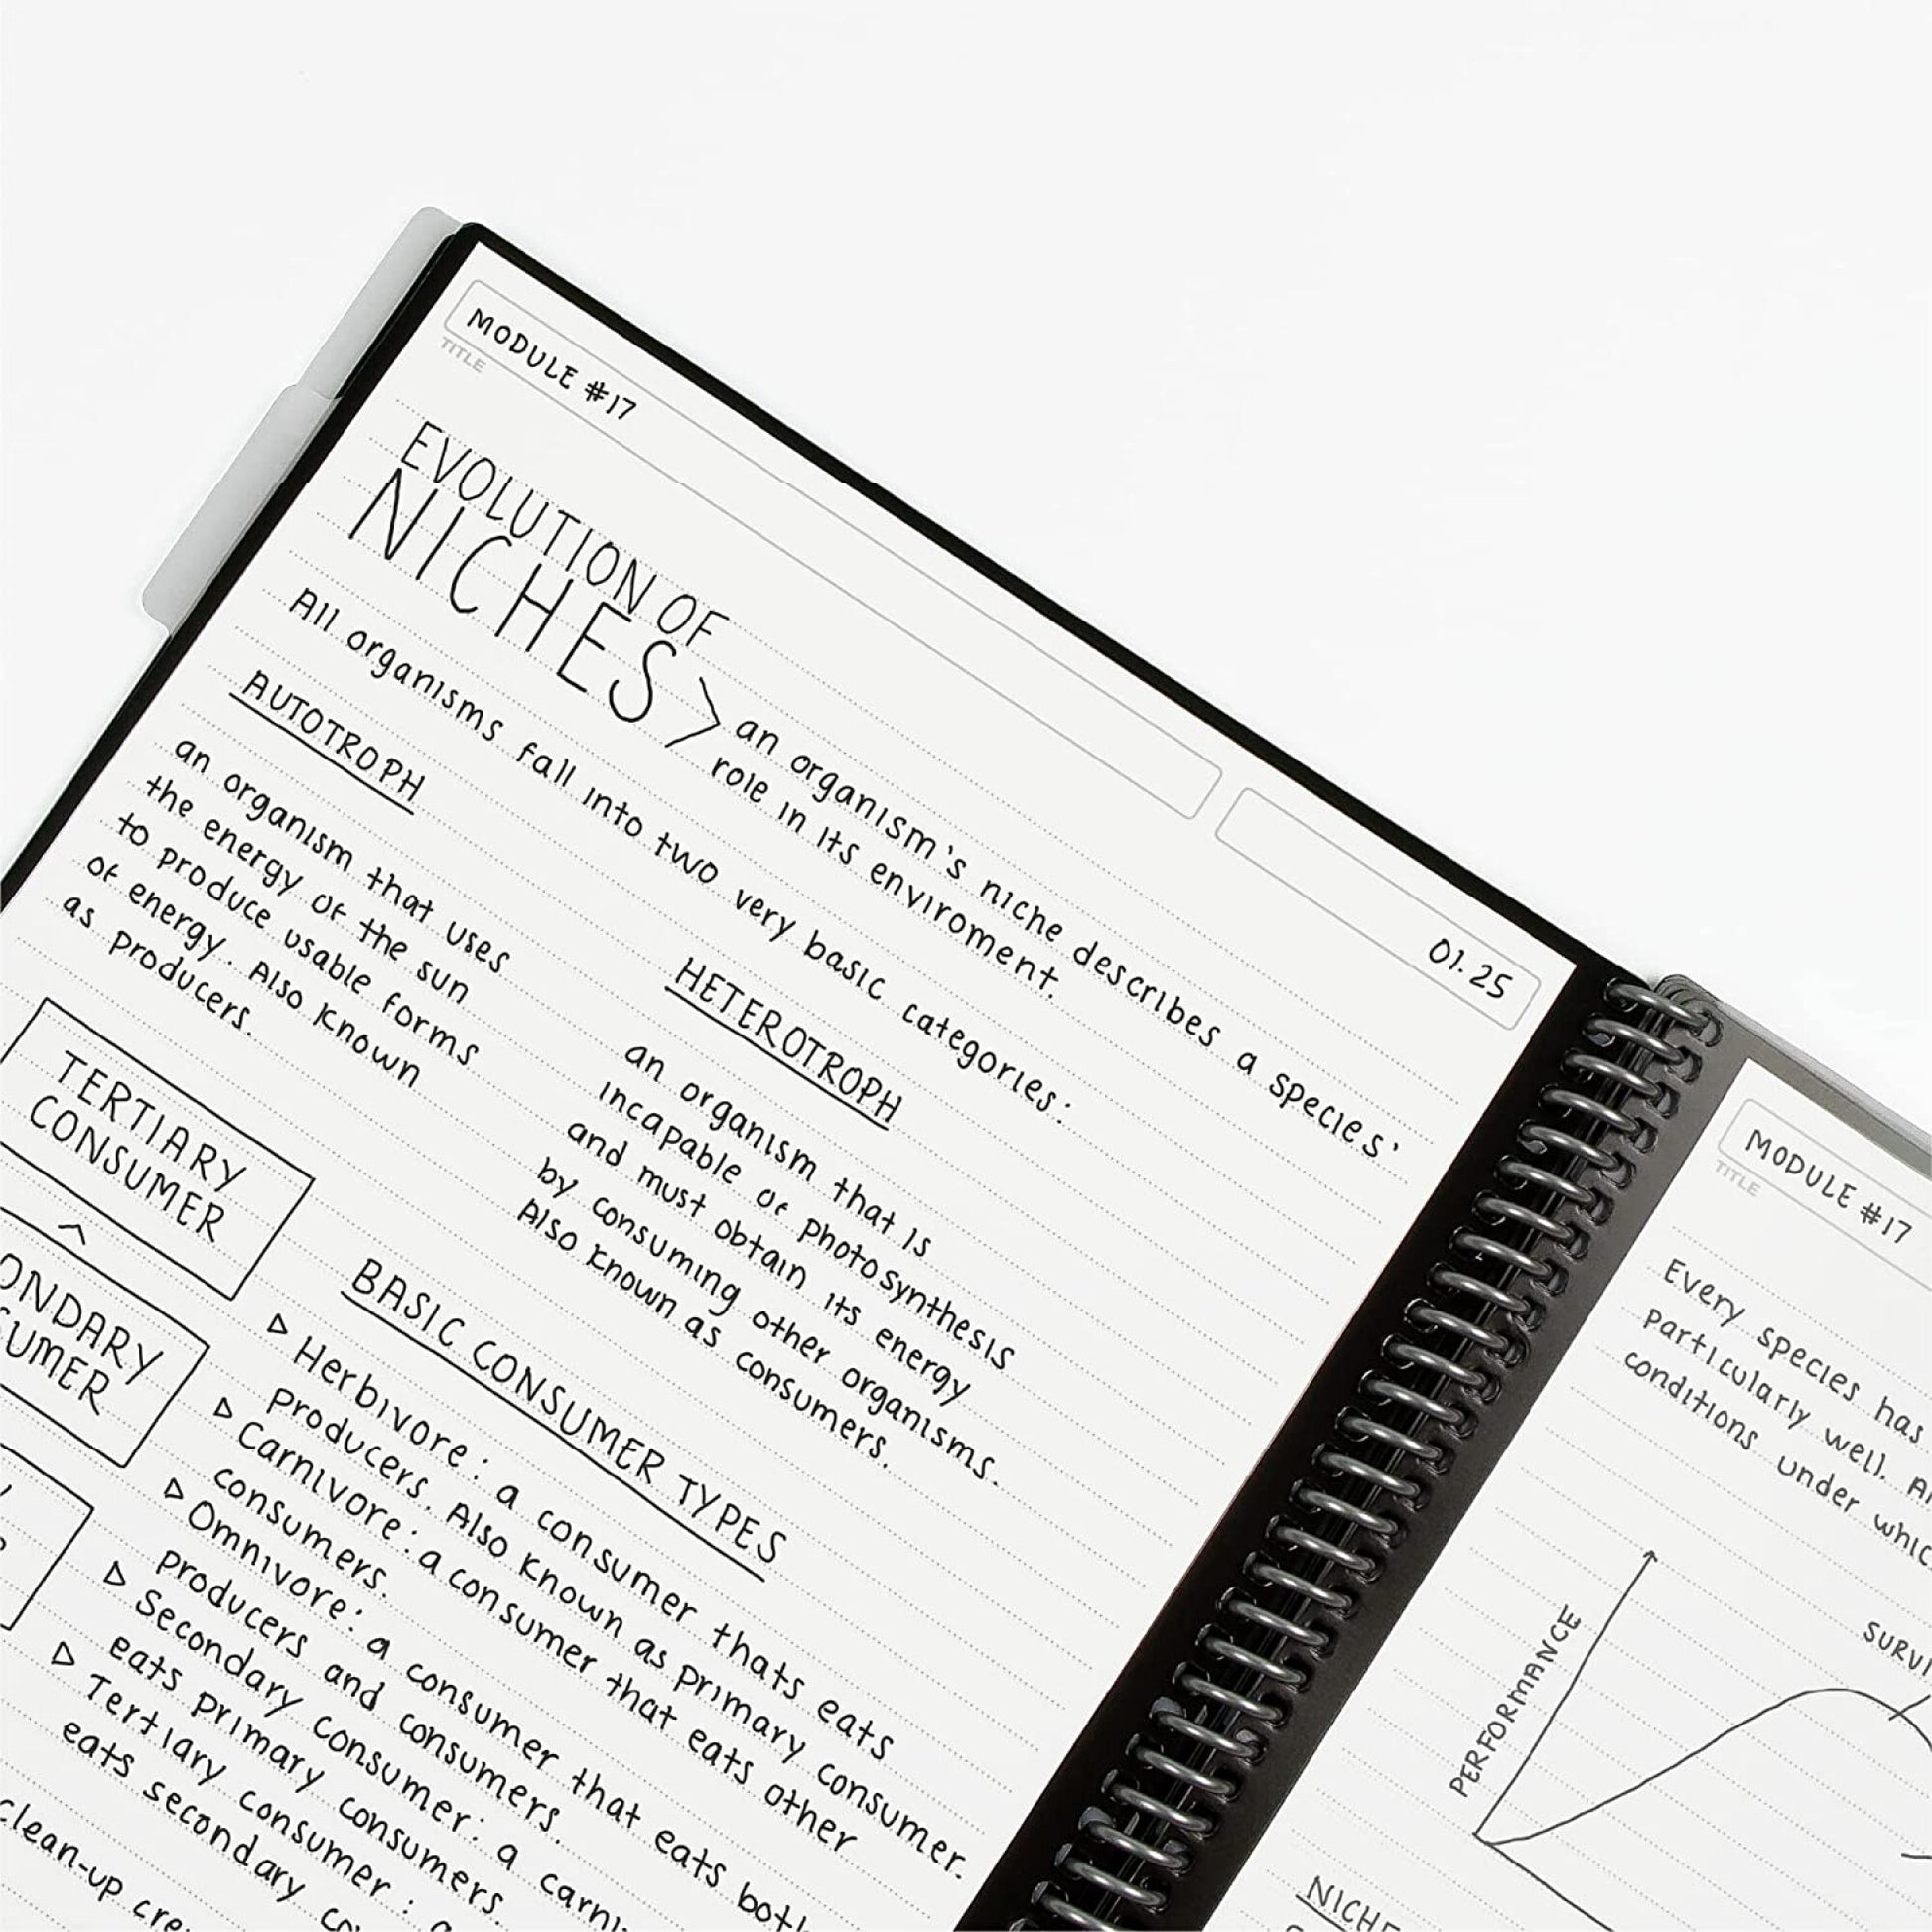 MODULE #17
TITLE
01.25
EVOLUTION OF
NICHES
an organism's niche describes a species'
role in its enviroment.
All organisms fall into two very basic categories:
AUTOTROPH
an organism that uses
the energy of the sun
to produce usable forms
of energy. Also known
as producers.
HETEROTROPH
an organism that is
incapable of photosynthesis
and must obtain its energy
by consuming other organisms.
Also known as consumers.
TERTIARY
CONSUMER
BASIC CONSUMER TYPES
▷ Herbivore: a consumer thats eats
producers. Also known as primary consumer.
▷ Carnivore: a consumer that eats other
consumers.
▷ Omnivore: a consumer that eats both
producers and consumers.
▷ Secondary consumer: a
eats primary consumers.
▷ Tertiary consumer: a
eats secondary
clean-up
MODULE #17
TITLE
Every species has
particularly well.
conditions under
PERFORMANCE